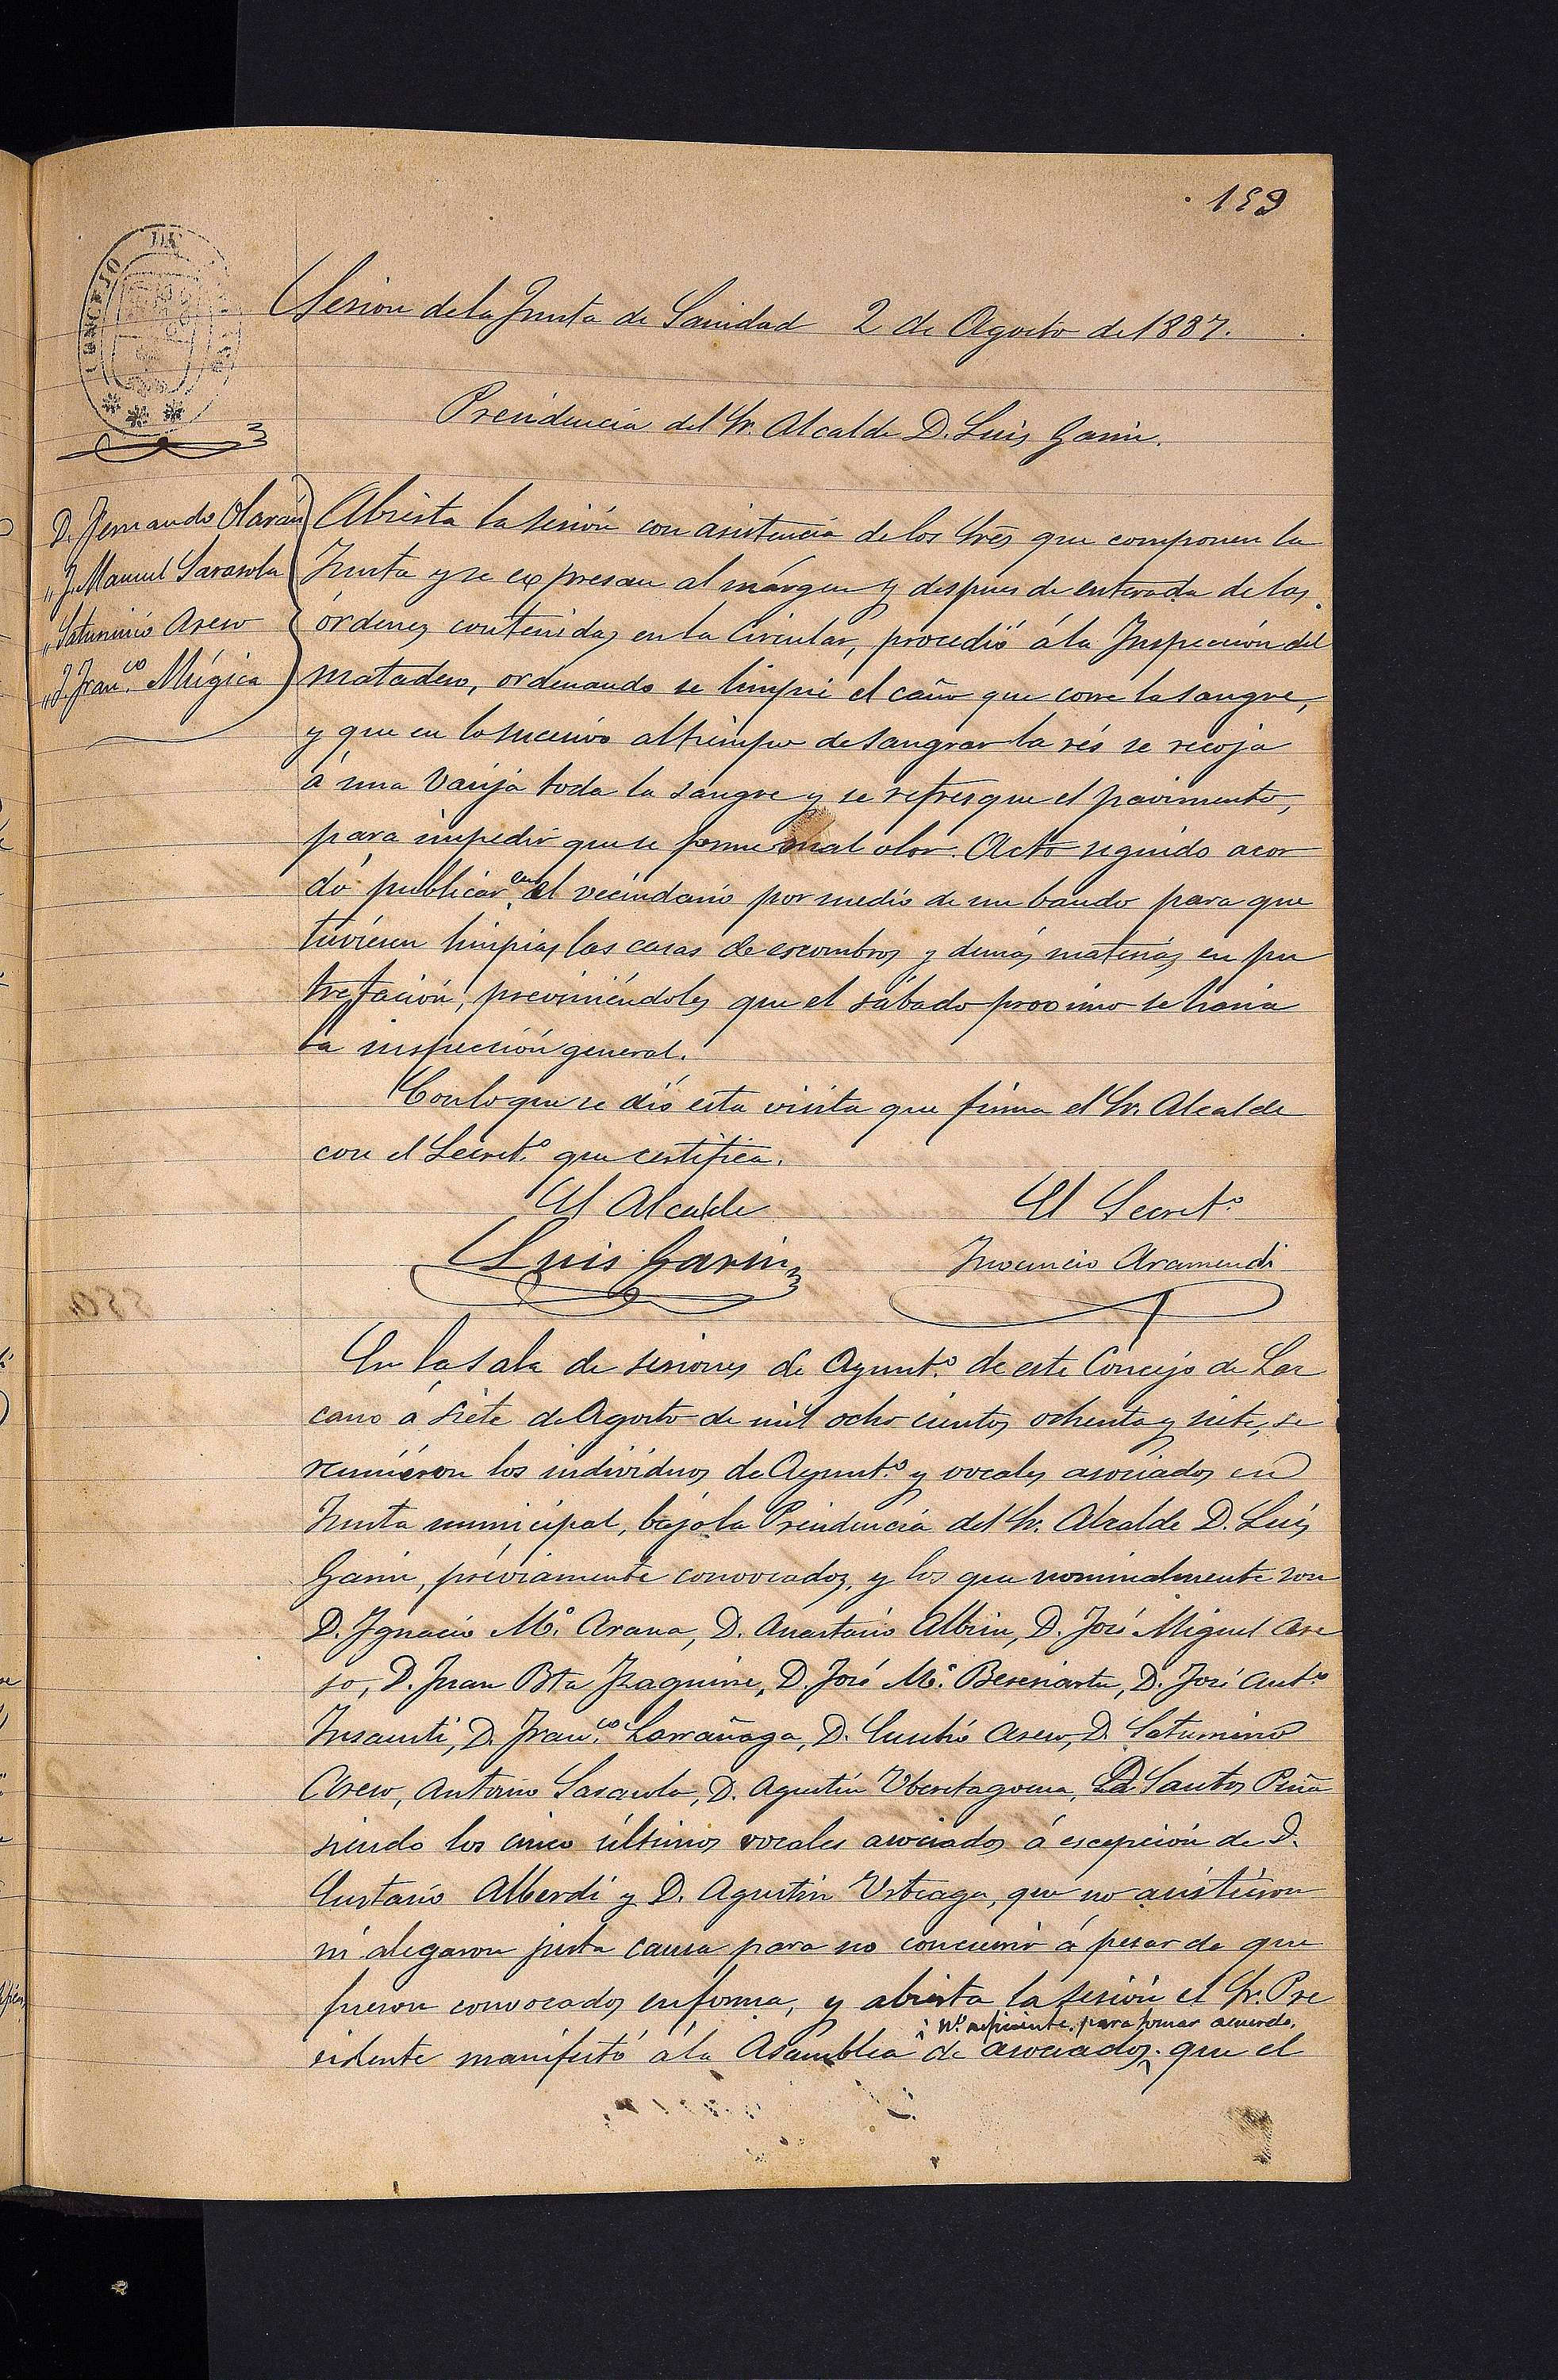 159
CONCEJO DE
Sesion de la Junta de Sanidad 2 de Agosto de 1887.
Presidencia del Sr. Alcalde D. Luis Garin.
D. Fernando Olarán
„ J. Manuel Sarasola
„ Saturnino Aseso
„ J. Fran.co Múgica
Abierta la sesión con asistencia de los Sres que componen la
Junta y se expresan al márgen y despues de enterada de las
órdenes contenidas en la Circular, procedió á la Inspección del
matadero, ordenando se limpie el caño que corre la sangre,
y que en lo sucesivo al tiempo de sangrar la rés se recoja
á una vasija toda la sangre y se refresque el pavimento,
para impedir que se forme mal olor. Acto seguido acor
dó publicar en el vecindario por medio de un bando para que
tuviesen limpias las casas de escombros y demás materias en pu
trefación, previniéndoles que el sábado proximo se haria
la inspección general.
Con lo que se dió esta visita que firma el Sr. Alcalde
con el Secret.o que certifica.
El Alcalde
El Secret.o
Luis Garin
Inocencio Aramendi
En la sala de sesiones de Ayunt.o de este Concejo de Laz
cano á siete de Agosto de mil ocho cientos ochenta y siete, se
reunieron los individuos de Ayunt.o y vocales asociados en
Junta municipal, bajo la Presidencia del Sr. Alcalde D. Luis
Garin, préviamente convocados, y los que nominalmente son
D. Ignacio M.a Arana, D. Anastasio Albisu, D. José Miguel Ase
so, D. Juan Bta Izaguirre, D. José M.a Bereciartu, D. José Ant.o
Insausti, D. Fran.co Larrañaga, D. Eusebio Aseso, D. Saturnino
Aseso, Antonio Sarasola, D. Agustin Uberetagoena, D. Santos Peña
siendo los cinco últimos vocales asociados á escepción de D.
Eustasio Alberdi y D. Agustin Urteaga, que no asistieron
ni alegaron justa causa para no concurrir á pesar de que
fueron convocados en forma, y abierta la sesión el Sr. Pre
sidente manifestó á la Asamblea de asociados que el
n.o suficiente para tomar acuerdo.